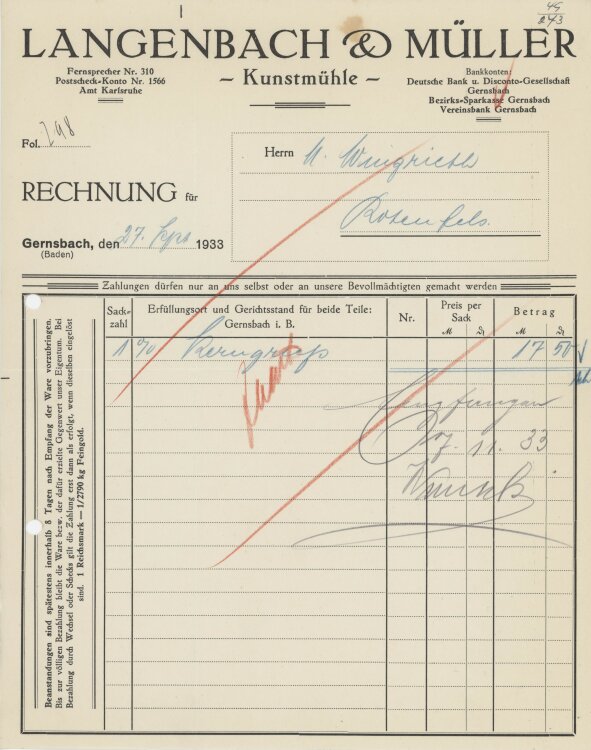 45
243
LANGENBACH & MÜLLER
Fernsprecher Nr. 310
Postscheck-Konto Nr. 1566
Amt Karlsruhe
– Kunstmühle –
Bankkonten:
Deutsche Bank u. Disconto-Gesellschaft
Gernsbach
Bezirks-Sparkasse Gernsbach
Vereinsbank Gernsbach
Fol. 298
Herrn
Rotenfels.
RECHNUNG für
Gernsbach, den 27. Sept 1933
(Baden)
Zahlungen dürfen nur an uns selbst oder an unsere Bevollmächtigten gemacht werden
Beanstandungen sind spätestens innerhalb 8 Tagen nach Empfang der Ware vorzubringen.
Bis zur völligen Bezahlung bleibt die Ware bezw. der dafür erzielte Gegenwert unser Eigentum. Bei
Bezahlung durch Wechsel oder Schecks gilt die Zahlung erst dann als erfolgt, wenn dieselben eingelöst
sind. 1 Reichsmark — 1/2790 kg Feingold.
Sack-zahl
Erfüllungsort und Gerichtsstand für beide Teile:
Gernsbach i. B.
Nr.
Preis per Sack
Betrag
M ₰ M ₰
1 Kerngries 17 50
7. 11. 33